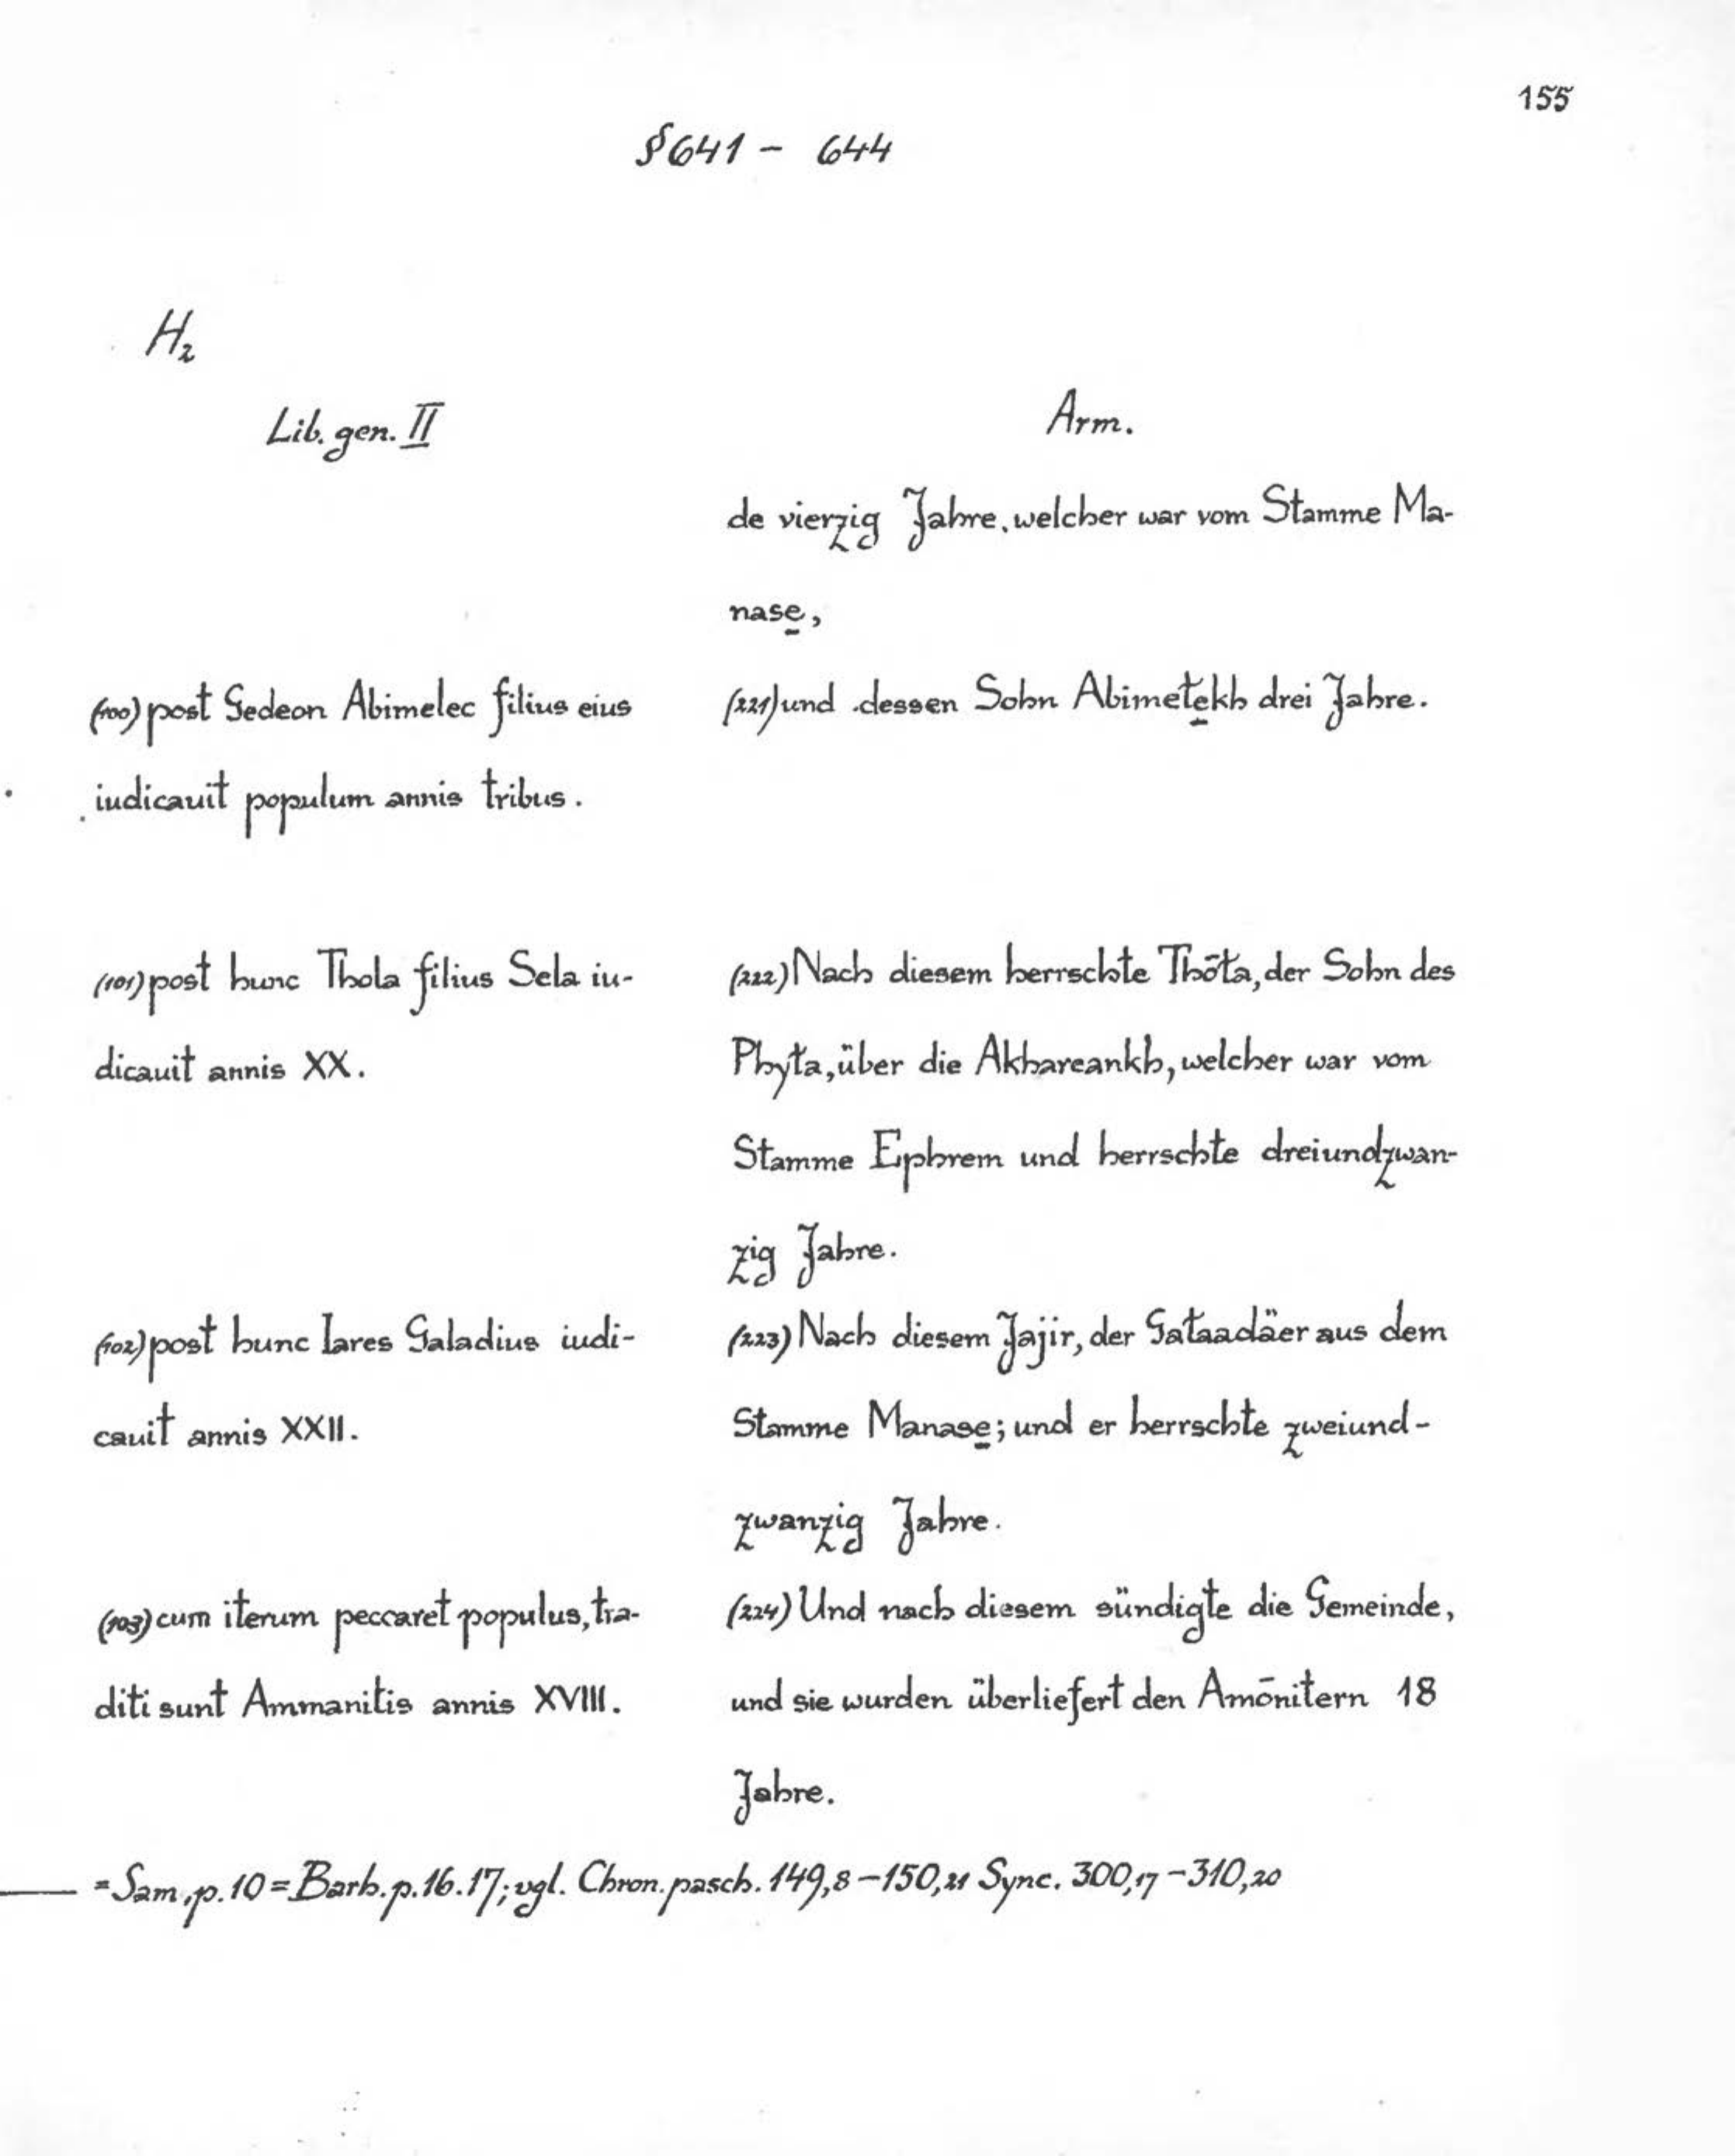 155
§641 - 644
H₂
Lib. gen. II
Arm.
de vierzig Jahre, welcher war vom Stamme Ma-
nase̱,
(100) post Gedeon Abimelec filius eius
iudicauit populum annis tribus.
(221) und dessen Sohn Abimeṫe̱kh drei Jahre.
(101) post hunc Thola filius Sela iu-
dicauit annis XX.
(222) Nach diesem herrschte Thōṫa, der Sohn des
Phyṫa, über die Akhareankh, welcher war vom
Stamme Ephrem und herrschte dreiundzwan-
zig Jahre.
(102) post hunc Iares Galadius iudi-
cauit annis XXII.
(223) Nach diesem Jajir, der Gaṫaadäer aus dem
Stamme Manase̱; und er herrschte zweiund-
zwanzig Jahre.
(103) cum iterum peccaret populus, tra-
diti sunt Ammanitis annis XVIII.
(224) Und nach diesem sündigte die Gemeinde,
und sie wurden überliefert den Amōnitern 18
Jahre.
= Sam. p. 10 = Barb. p. 16. 17; vgl. Chron. pasch. 149,8 - 150,21 Sync. 300,17 - 310,20